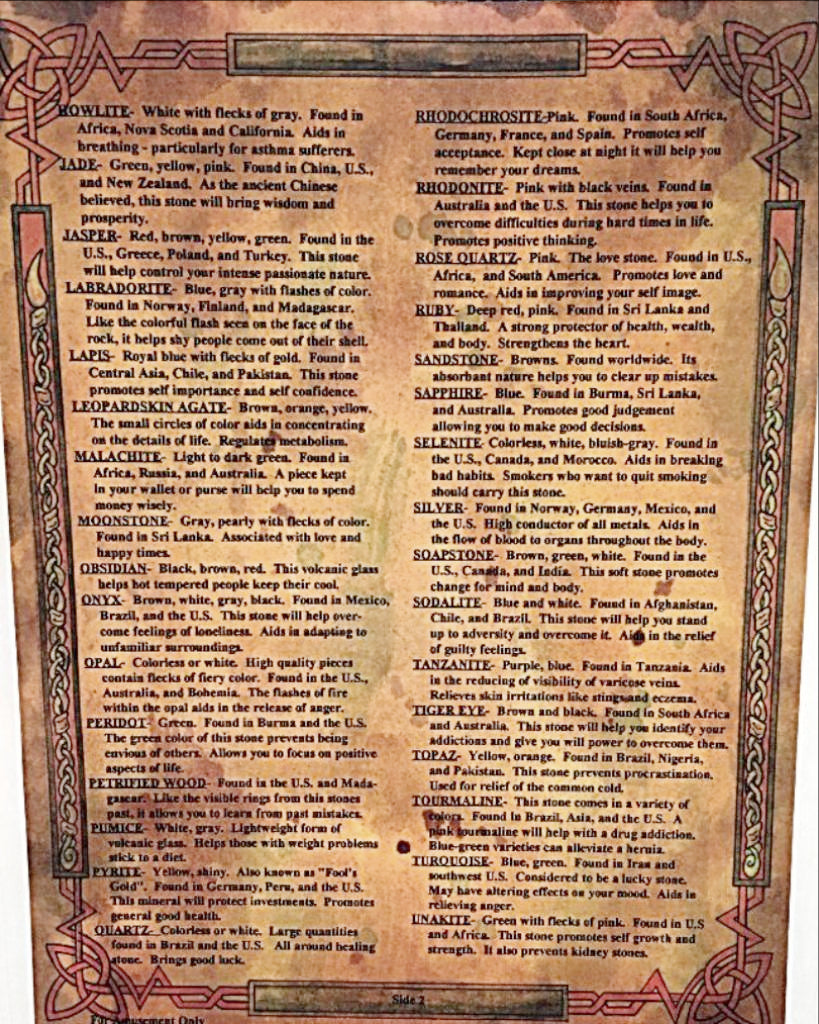 HOWLITE- White with flecks of gray. Found in
Africa, Nova Scotia and California. Aids in
breathing - particularly for asthma sufferers.
JADE- Green, yellow, pink. Found in China, U.S.,
and New Zealand. As the ancient Chinese
believed, this stone will bring wisdom and
prosperity.
JASPER- Red, brown, yellow, green. Found in the
U.S., Greece, Poland, and Turkey. This stone
will help control your intense passionate nature.
LABRADORITE- Blue, gray with flashes of color.
Found in Norway, Finland, and Madagascar.
Like the colorful flash seen on the face of the
rock, it helps shy people come out of their shell.
LAPIS- Royal blue with flecks of gold. Found in
Central Asia, Chile, and Pakistan. This stone
promotes self importance and self confidence.
LEOPARDSKIN AGATE- Brown, orange, yellow.
The small circles of color aids in concentrating
on the details of life. Regulates metabolism.
MALACHITE- Light to dark green. Found in
Africa, Russia, and Australia. A piece kept
in your wallet or purse will help you to spend
money wisely.
MOONSTONE- Gray, pearly with flecks of color.
Found in Sri Lanka. Associated with love and
happy times.
OBSIDIAN- Black, brown, red. This volcanic glass
helps hot tempered people keep their cool.
ONYX- Brown, white, gray, black. Found in Mexico,
Brazil, and the U.S. This stone will help over-
come feelings of loneliness. Aids in adapting to
unfamiliar surroundings.
OPAL- Colorless or white. High quality pieces
contain flecks of fiery color. Found in the U.S.,
Australia, and Bohemia. The flashes of fire
within the opal aids in the release of anger.
PERIDOT- Green. Found in Burma and the U.S.
The green color of this stone prevents being
envious of others. Allows you to focus on positive
aspects of life.
PETRIFIED WOOD- Found in the U.S. and Mada-
gascar. Like the visible rings from this stones
past, it allows you to learn from past mistakes.
PUMICE- White, gray. Lightweight form of
volcanic glass. Helps those with weight problems
stick to a diet.
PYRITE- Yellow, shiny. Also known as "Fool's
Gold". Found in Germany, Peru, and the U.S.
This mineral will protect investments. Promotes
general good health.
QUARTZ- Colorless or white. Large quantities
found in Brazil and the U.S. All around healing
stone. Brings good luck.
RHODOCHROSITE-Pink. Found in South Africa,
Germany, France, and Spain. Promotes self
acceptance. Kept close at night it will help you
remember your dreams.
RHODONITE- Pink with black veins. Found in
Australia and the U.S. This stone helps you to
overcome difficulties during hard times in life.
Promotes positive thinking.
ROSE QUARTZ- Pink. The love stone. Found in U.S.,
Africa, and South America. Promotes love and
romance. Aids in improving your self image.
RUBY- Deep red, pink. Found in Sri Lanka and
Thailand. A strong protector of health, wealth,
and body. Strengthens the heart.
SANDSTONE- Browns. Found worldwide. Its
absorbant nature helps you to clear up mistakes.
SAPPHIRE- Blue. Found in Burma, Sri Lanka,
and Australia. Promotes good judgement
allowing you to make good decisions.
SELENITE- Colorless, white, bluish-gray. Found in
the U.S., Canada, and Morocco. Aids in breaking
bad habits. Smokers who want to quit smoking
should carry this stone.
SILVER- Found in Norway, Germany, Mexico, and
the U.S. High conductor of all metals. Aids in
the flow of blood to organs throughout the body.
SOAPSTONE- Brown, green, white. Found in the
U.S., Canada, and India. This soft stone promotes
change for mind and body.
SODALITE- Blue and white. Found in Afghanistan,
Chile, and Brazil. This stone will help you stand
up to adversity and overcome it. Aids in the relief
of guilty feelings.
TANZANITE- Purple, blue. Found in Tanzania. Aids
in the reducing of visibility of varicose veins.
Relieves skin irritations like stings and eczema.
TIGER EYE- Brown and black. Found in South Africa
and Australia. This stone will help you identify your
addictions and give you will power to overcome them.
TOPAZ- Yellow, orange. Found in Brazil, Nigeria,
and Pakistan. This stone prevents procrastination.
Used for relief of the common cold.
TOURMALINE- This stone comes in a variety of
colors. Found in Brazil, Asia, and the U.S. A
pink tourmaline will help with a drug addiction.
Blue-green varieties can alleviate a hernia.
TURQUOISE- Blue, green. Found in Iran and
southwest U.S. Considered to be a lucky stone.
May have altering effects on your mood. Aids in
relieving anger.
UNAKITE- Green with flecks of pink. Found in U.S
and Africa. This stone promotes self growth and
strength. It also prevents kidney stones.
Side 2
For Amusement Only